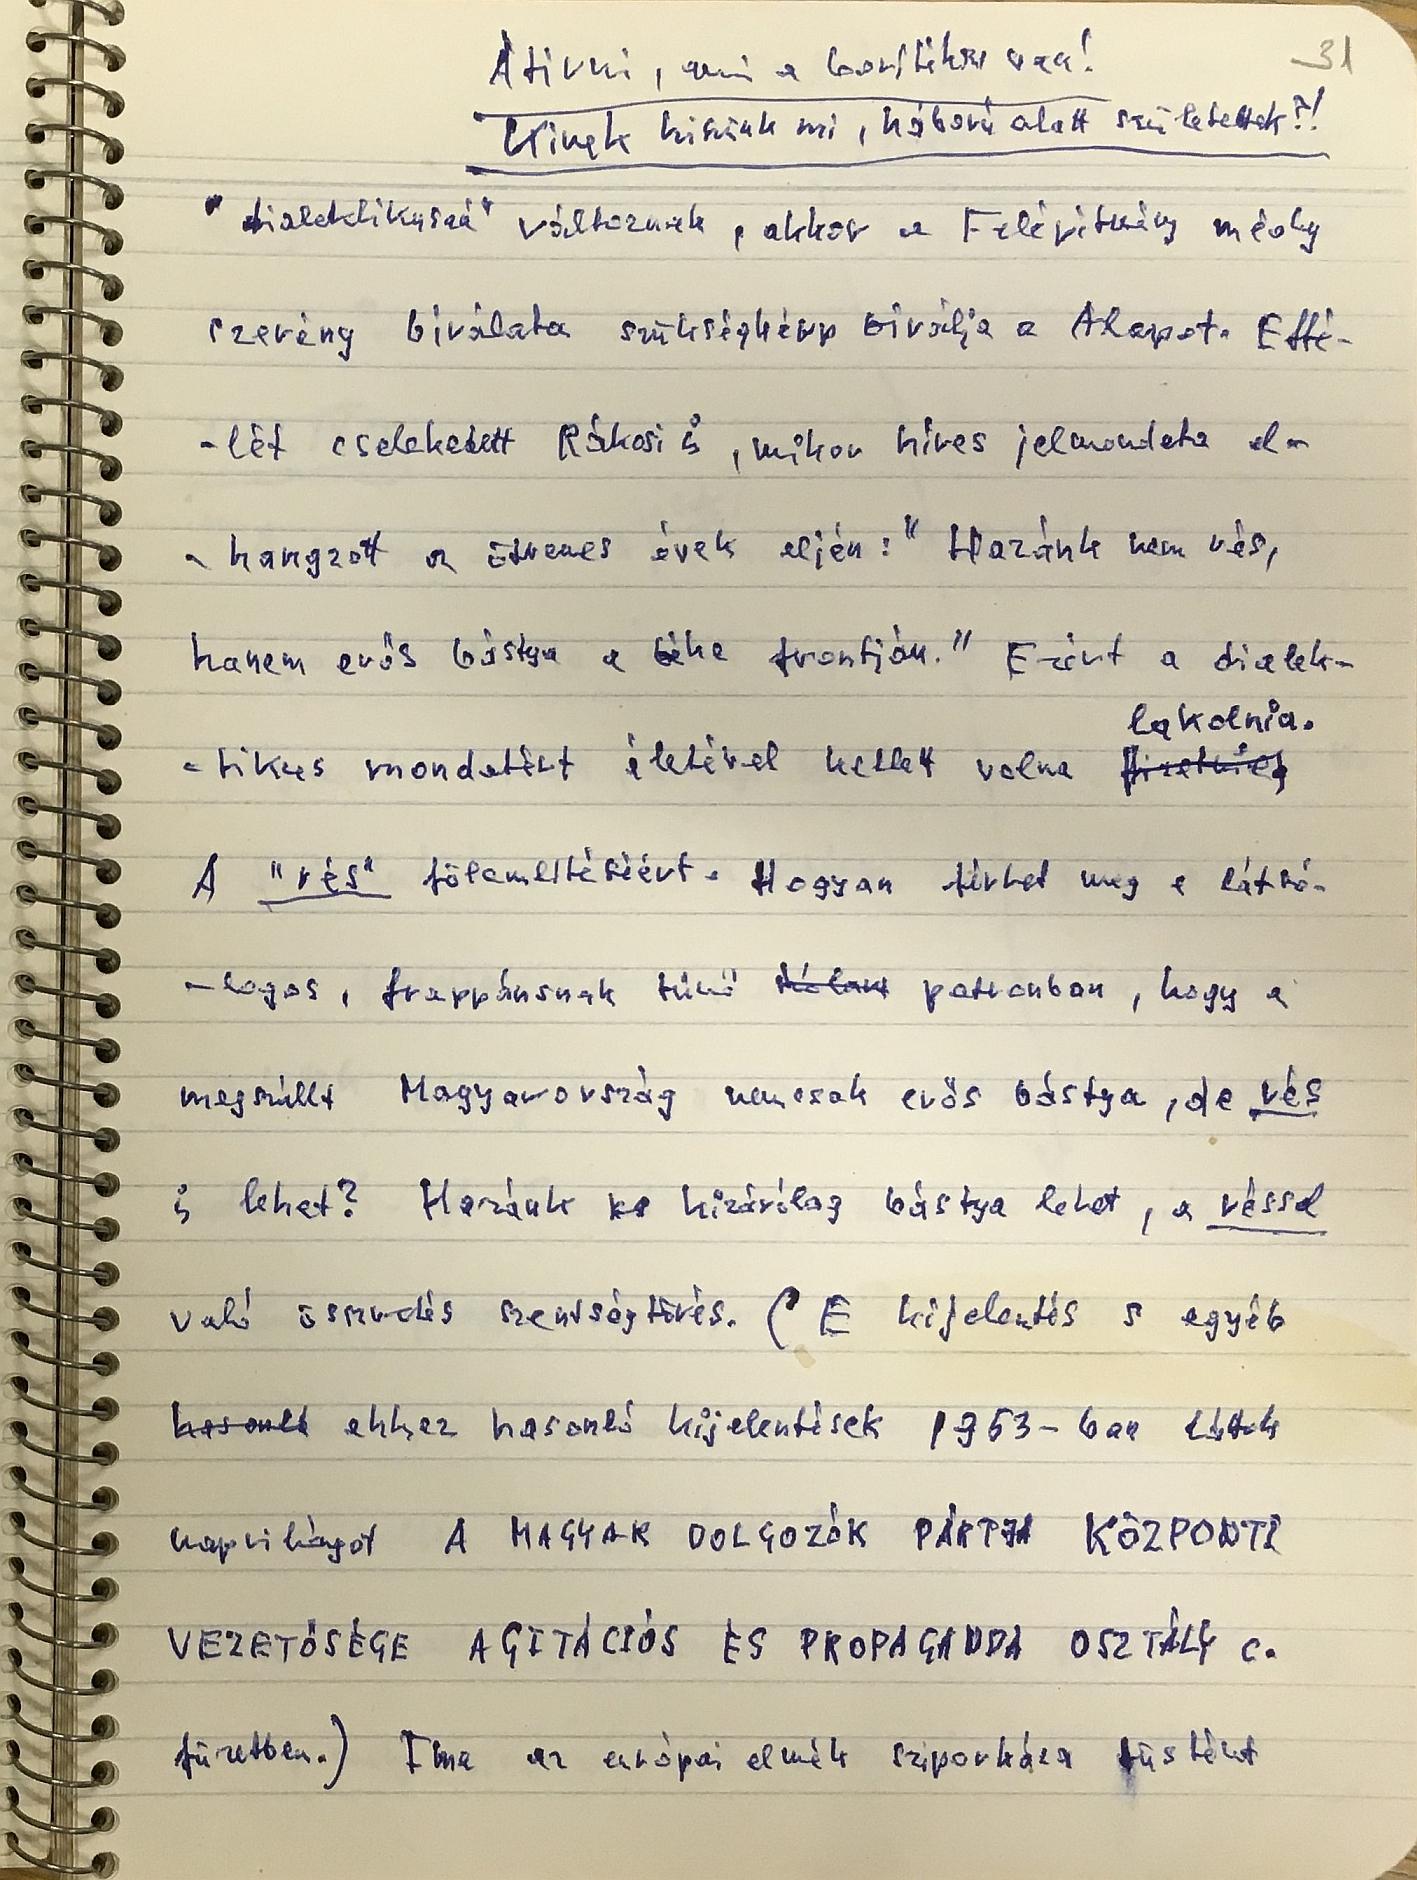 31
Átírni, ami a borítékon van!
Kinek hiszünk mi, háború alatt születettek?!
"dialektikussá" változnak, akkor a Felépítmény mégoly
szerény bírálata szükségképp bírálja a Alapot. Effé-
-lét cselekedett Rákosi is, mikor híres jelmondata el-
- hangzott az ötvenes évek elején: "Hazánk nem rés,
hanem erős bástya a béke frontján." Ezért a dialek-
lakolnia.
-tikus mondatért életével kellett volna fizetnie,
A "rés" fölemlítéséért. Hogyan férhet meg e látszó-
-lagos, frappánsnak tűnő patronban, hogy a
megszállt Magyarország nemcsak erős bástya, de rés
is lehet? Hazánk kizárólag bástya lehet, a réssel
való összevetés szentségtörés. (E kijelentés s egyéb
hasonló ehhez hasonló kijelentések 1953-ban láttak
napvilágot A MAGYAR DOLGOZÓK PÁRTJA KÖZPONTI
VEZETŐSÉGE AGITÁCIÓS ÉS PROPAGANDA OSZTÁLY c.
füzetben.) Íme az európai elmék sziporkáza füstént